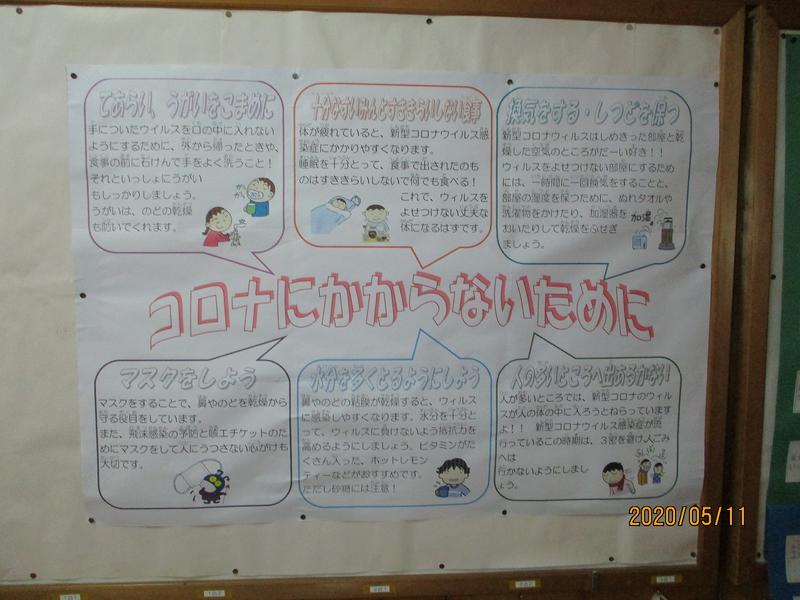 てあらい、うがいをこまめに
手についたウイルスを口の中に入れない
ようにするために、外から帰ったときや、
食事の前に石けんで手をよく洗うこと！
それといっしょにうがい
もしっかりしましょう。
うがいは、のどの乾燥
も防いでくれます。
十分なすいみんとすききらいしない食事
体が疲れていると、新型コロナウイルス感
染症にかかりやすくなります。
睡眠を十分とって、食事で出されたのも
のはすききらいしないで何でも食べる！
これで、ウィルスを
よせつけない丈夫な
体になるはずです。
換気をする・しつどを保つ
新型コロナウィルスはしめきった部屋と乾
燥した空気のところがだーい好き！！
ウィルスをよせつけない部屋にするため
には、一時間に一回換気をすることと、
部屋の湿度を保つために、ぬれタオルや
洗濯物をかけたり、加湿器を
おいたりして乾燥をふせぎ
ましょう。
加湿
コロナにかからないために
マスクをしよう
マスクをすることで、鼻やのどを乾燥から
守る役目をしています。
また、飛沫感染の予防と咳エチケットのた
めにマスクをして人にうつさない心がけも
大切です。
水分を多くとるようにしよう
鼻やのどの粘膜が乾燥すると、ウィルス
に感染しやすくなります。水分を十分と
って、ウィルスに負けないよう抵抗力を
高めるようにしましょう。ビタミンがた
くさん入った、ホットレモン
ティーなどがおすすめです。
ただし砂糖には注意！
人の多いところへ出あるかない
人が多いところでは、新型コロナのウィル
スが人の体の中に入ろうとねらっています
よ！！　新型コロナウイルス感染症が流
行っているこの時期は、３密を避け人ごみ
へは
行かないようにしまし
ょう。
2020/05/11